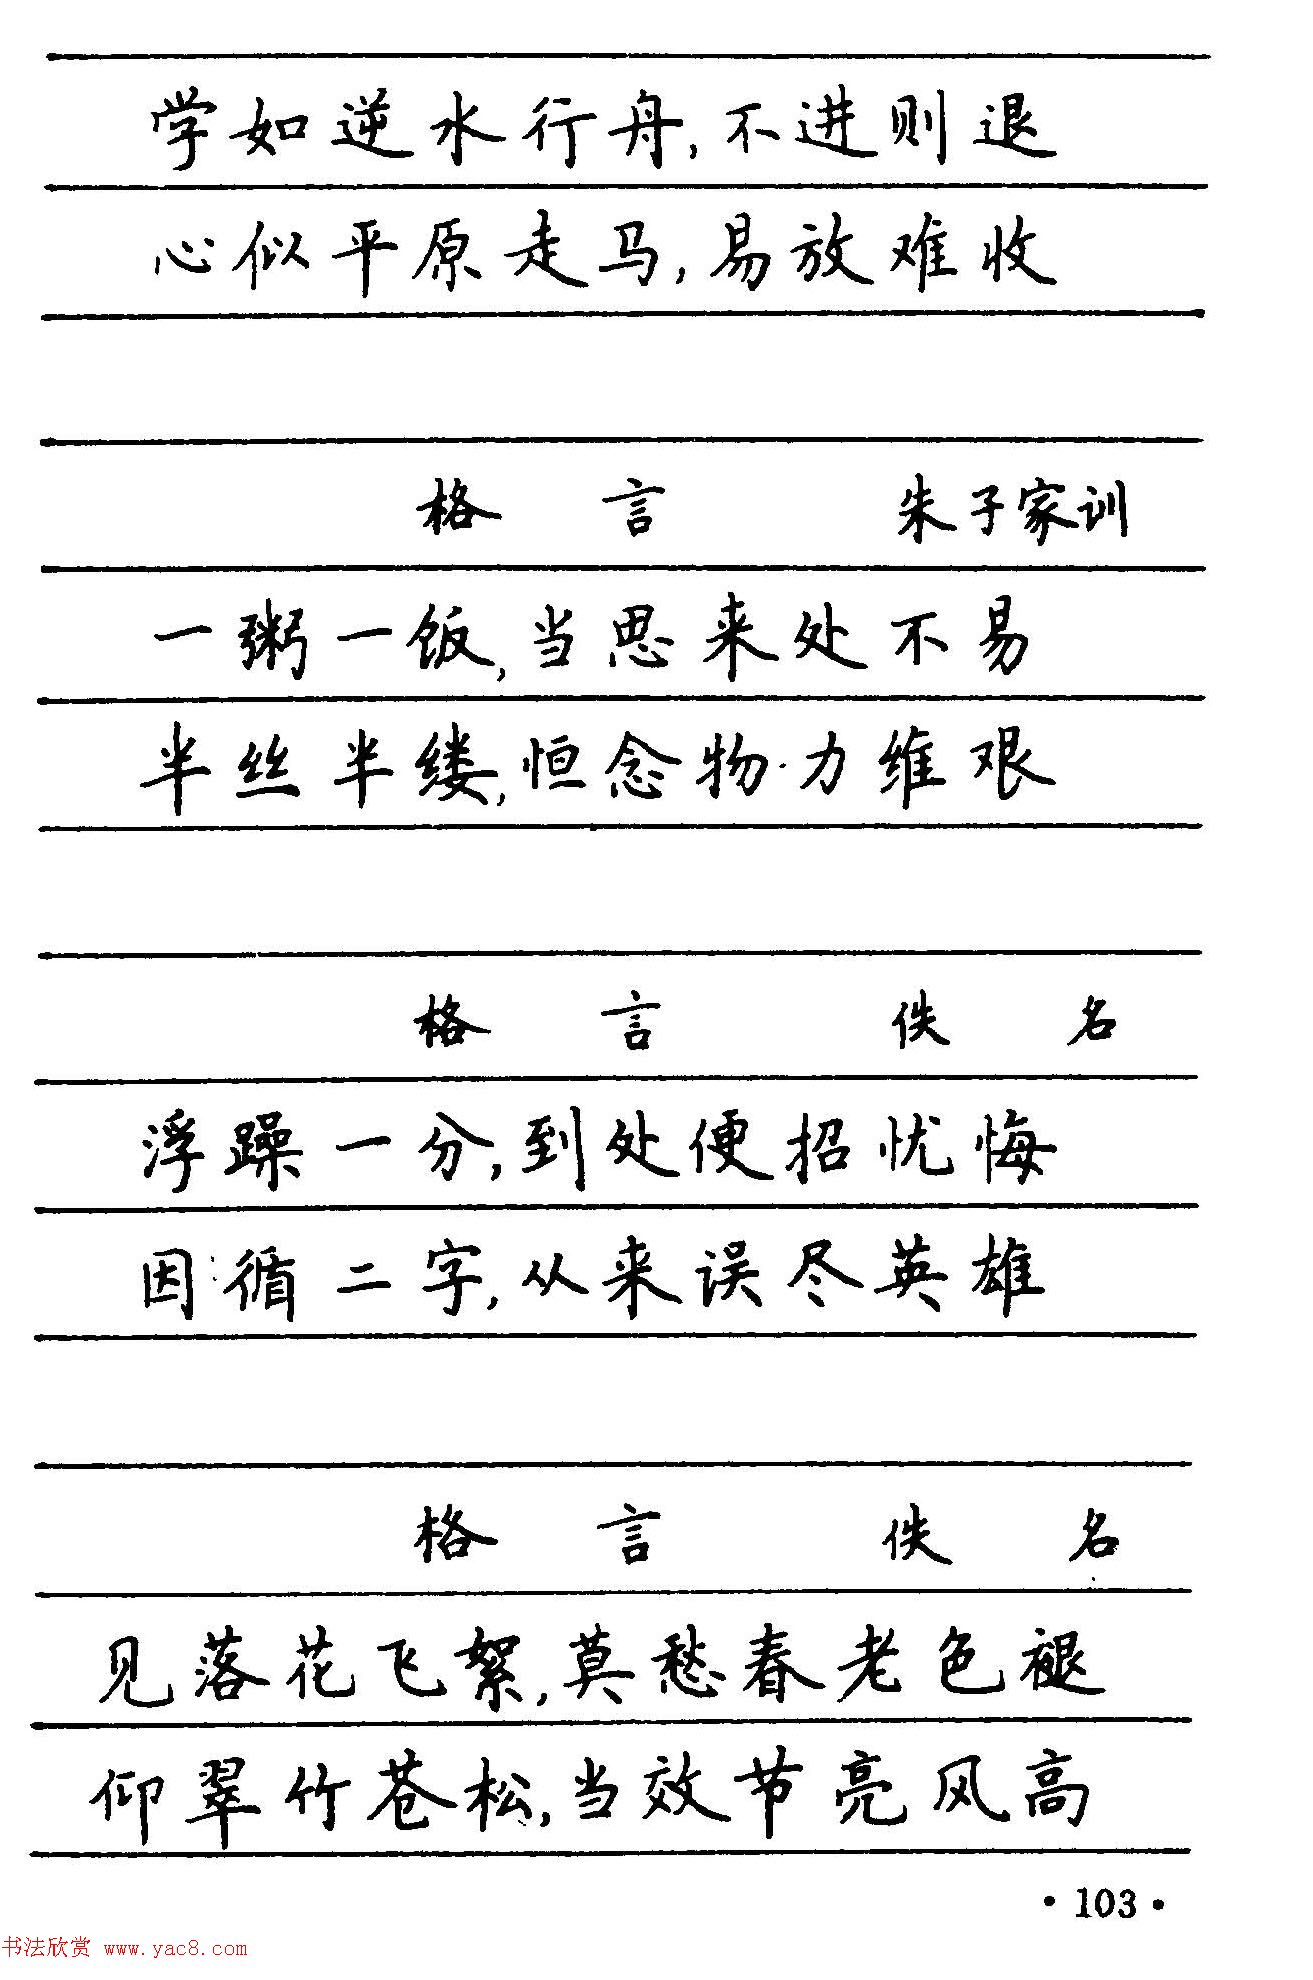 学如逆水行舟,不进则退
心似平原走马,易放难收
格言 朱子家训
一粥一饭,当思来处不易
半丝半缕,恒念物力维艰
格言 佚名
浮躁一分,到处便招忧悔
因循二字,从来误尽英雄
格言 佚名
见落花飞絮,莫愁春老色褪
仰翠竹苍松,当效节亮风高
·103·
书法欣赏 www.yac8.com